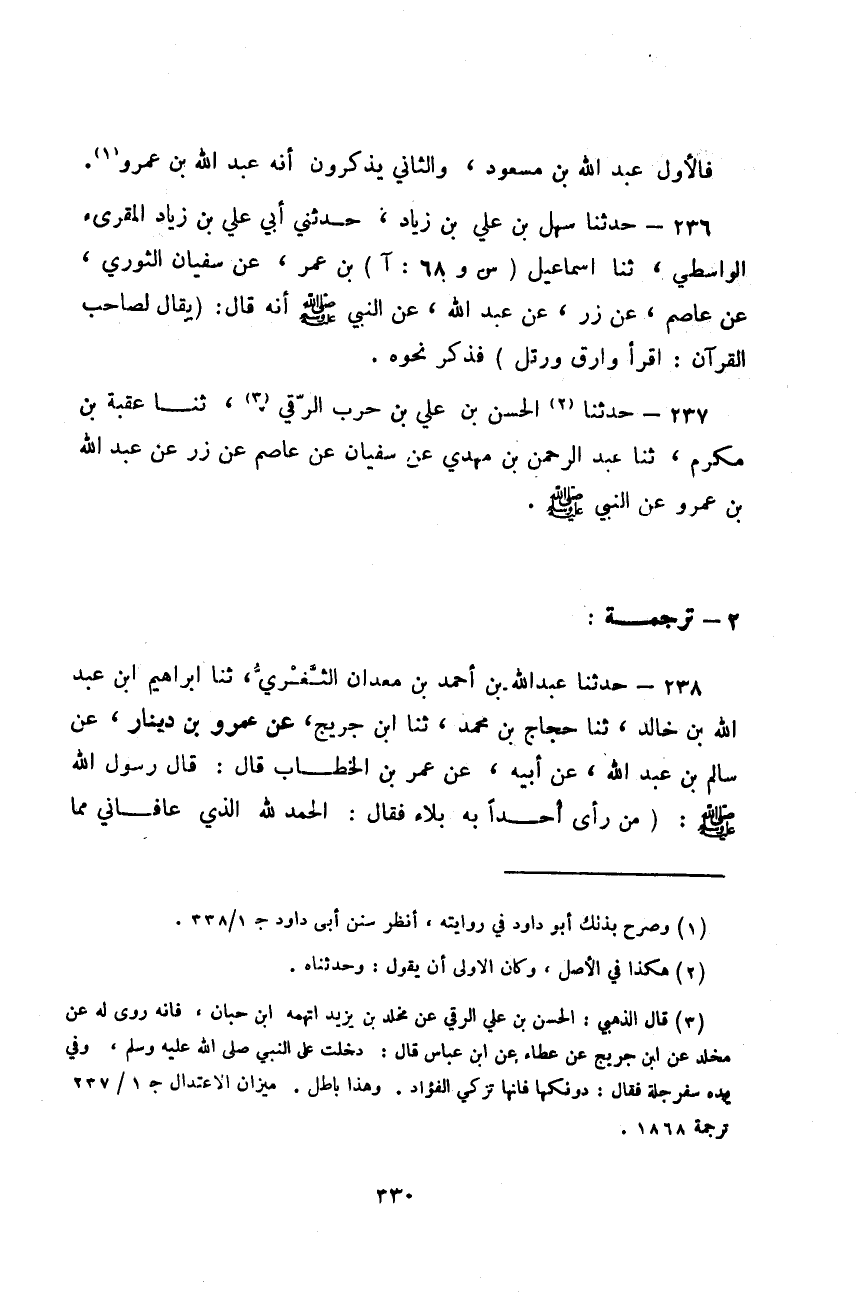 فالأول عبد الله بن مسعود ، والثاني يذكرون أنه عبد الله بن عمرو(١).
٢٣٦ – حدثنا سهل بن علي بن زياد ، حـدثني أبي علي بن زياد المقرىء
الواسطي ، ثنا اسماعيل ( س و ٦٨ : آ ) بن عمر ، عن سفيان الثوري ،
عن عاصم ، عن زر ، عن عبد الله ، عن النبي ﷺ أنه قال: (يقال لصاحب
القرآن : اقرأ وارق ورتل ) فذكر نحوه .
٢٣٧ – حدثنا (٢) الحسن بن علي بن حرب الرّقي (٣) ، ثنـــا عقبة بن
مكرم ، ثنا عبد الرحمن بن مهدي عن سفيان عن عاصم عن زر عن عبد الله
بن عمرو عن النبي ﷺ .
٢ – ترجمـــة :
٢٣٨ – حدثنا عبدالله بن أحمد بن معدان الثَّغْريُّ، ثنا ابراهيم ابن عبد
الله بن خالد ، ثنا حجاج بن محمد ، ثنا ابن جريج، عن عمرو بن دينار ، عن
سالم بن عبد الله ، عن أبيه ، عن عمر بن الخطـــاب قال : قال رسول الله
ﷺ : ( من رأى أحـــداً به بلاء فقال : الحمد لله الذي عافـــاني مما
(١) وصرح بذلك أبو داود في روايته ، أنظر سنن أبى داود ج ٣٣٨/١ .
(٢) هكذا في الأصل ، وكان الاولى أن يقول : وحدثناه .
(٣) قال الذهبي : الحسن بن علي الرقي عن مخلد بن يزيد اتهمه ابن حبان ، فانه روى له عن
مخلد عن ابن جريج عن عطاء عن ابن عباس قال : دخلت على النبي صلى الله عليه وسلم ، وفي
يده سفرجلة فقال : دونكها فانها تزكي الفؤاد . وهذا باطل . ميزان الاعتدال ج ١ / ٢٣٧
ترجمة ١٨٦٨ .
٣٣٠